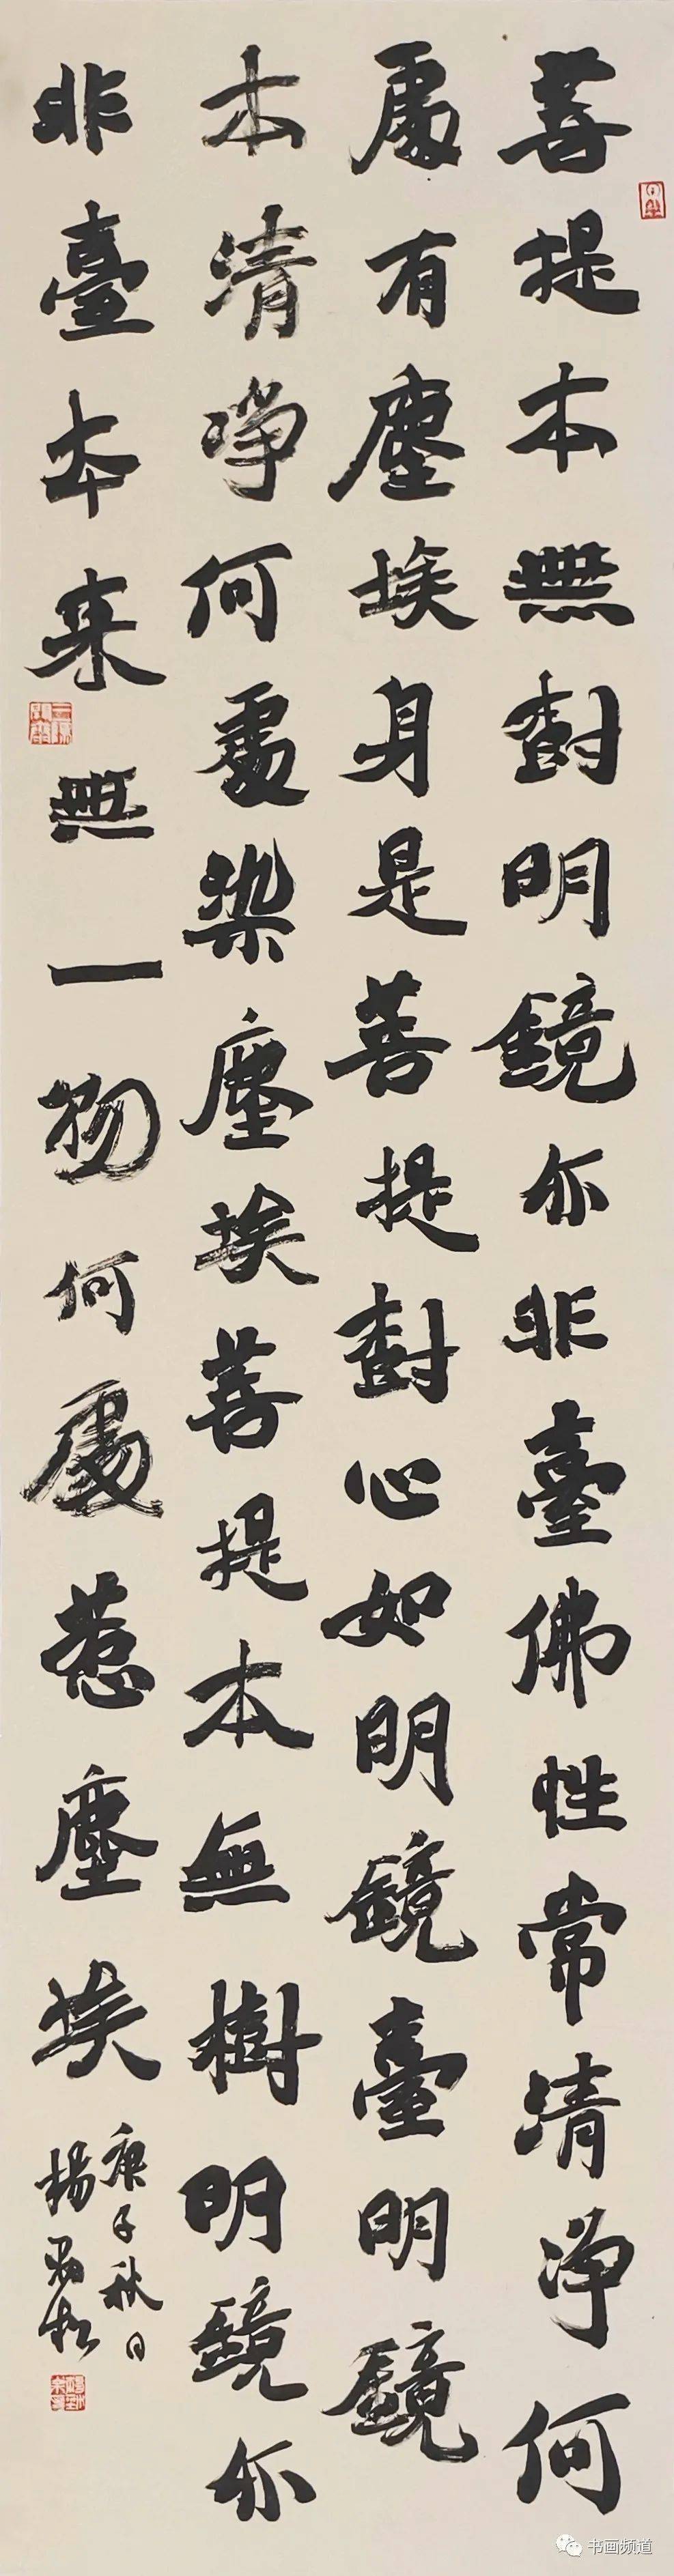 菩提本無樹明鏡亦非臺佛性常清淨何
處有塵埃身是菩提樹心如明鏡臺明鏡
本清淨何處染塵埃菩提本無樹明鏡亦
非臺本来無一物何處惹塵埃
庚子秋日
楊
书画频道